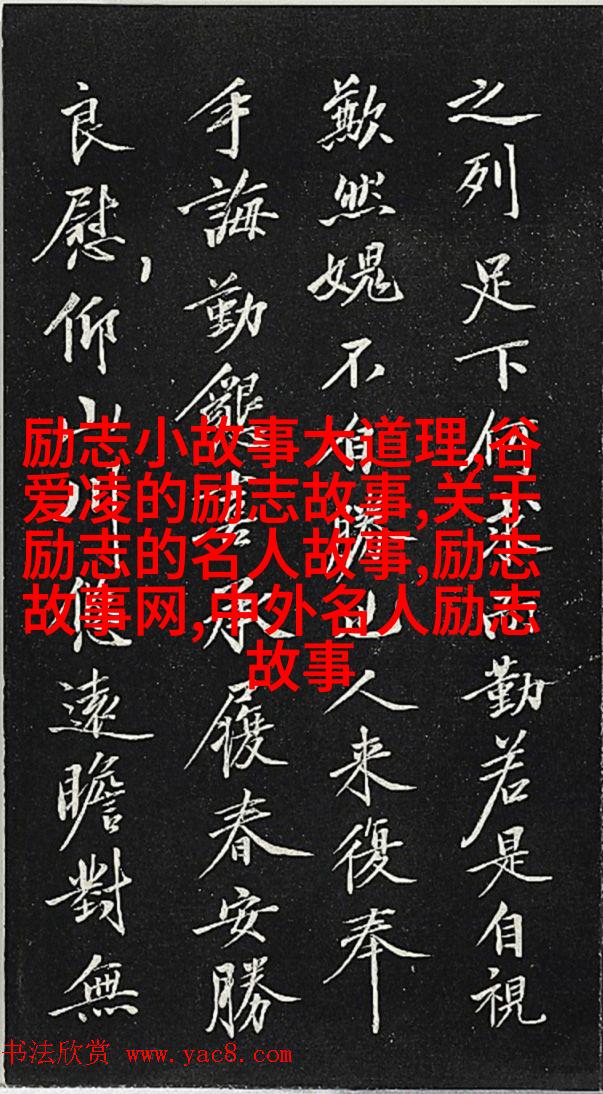 之列足下何而勤若是自視
然媿不自勝也人来復奉
手誨勤懇喜承履春安勝
良慰，仰山川悠遠瞻對無
励志小故事大道理,谷
爱凌的励志故事,关于
励志的名人故事,励志
故事网,中外名人励志
故事
书法欣赏 www.yac8.com